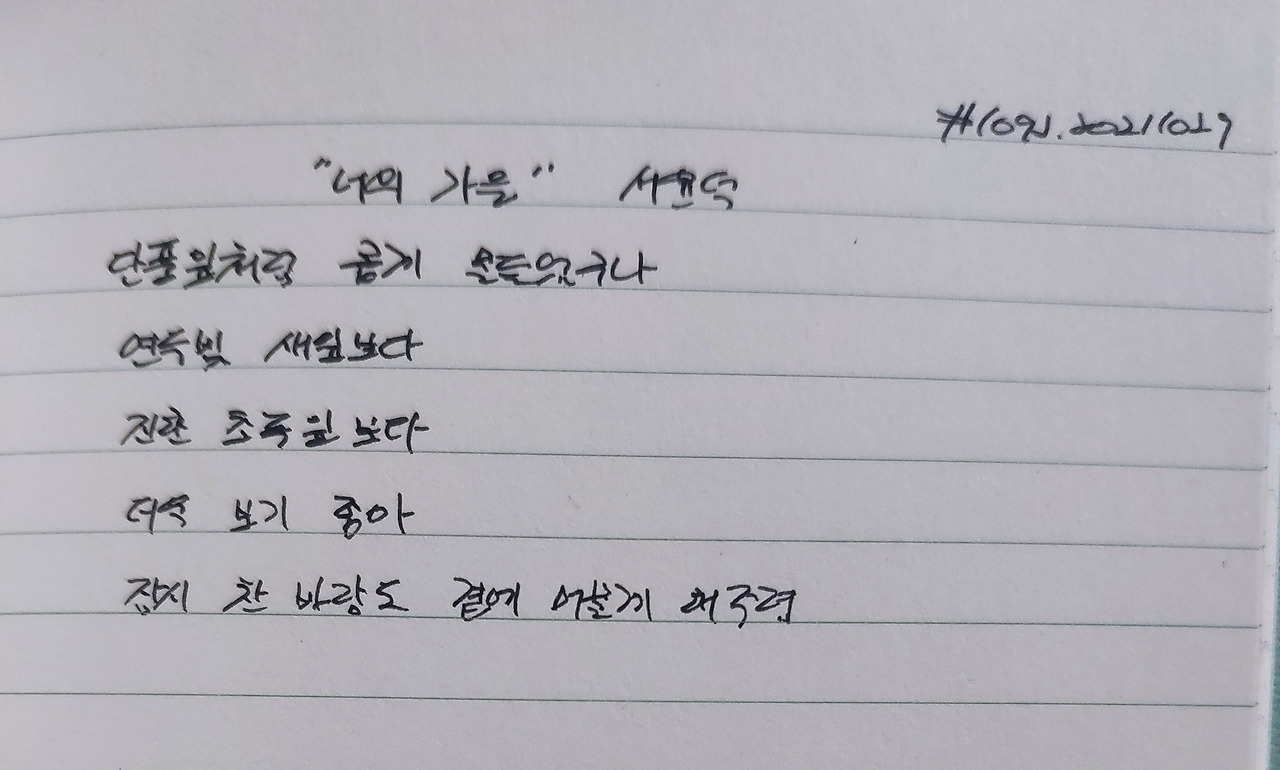 #1092. 20211029
"너의 가을" 서윤덕
단풍잎처럼 곱게 물들었구나
연두빛 새잎보다
진한 초록잎보다
더욱 보기 좋아
잠시 찬 바람도 곁에 머물게 해주렴